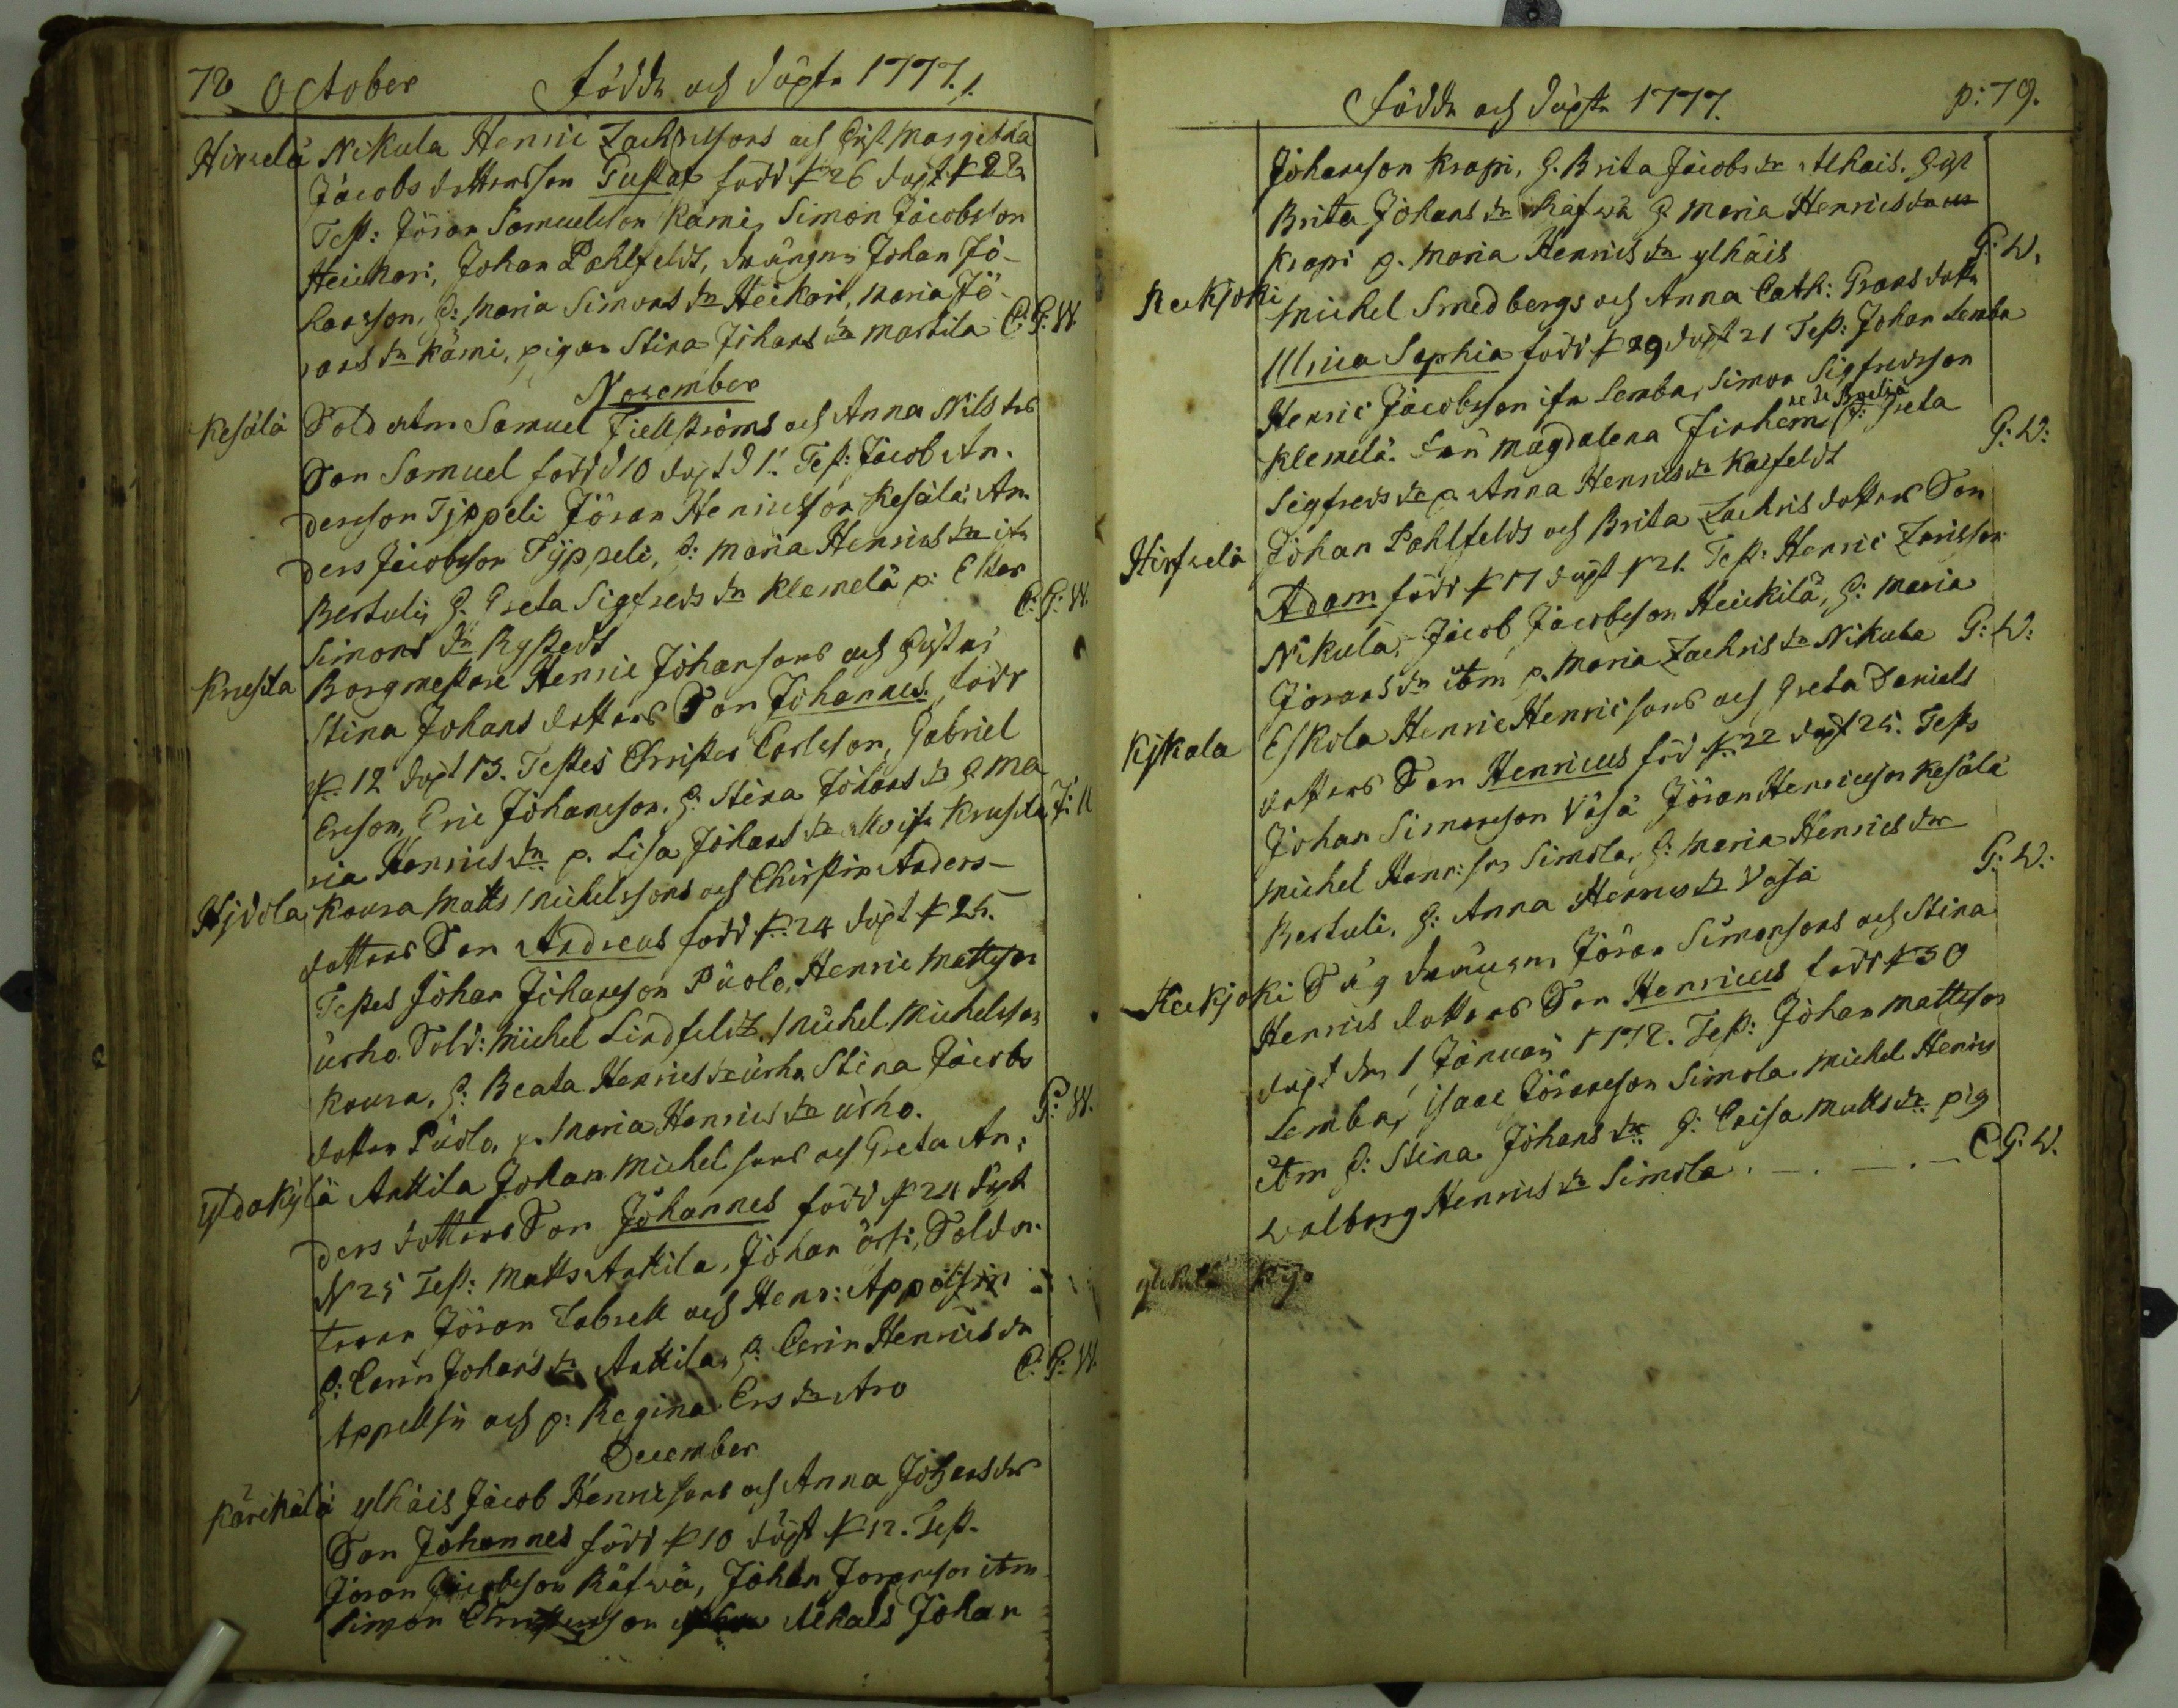 78 October Födde och döpte 1777.
Hirvelä Nikula Henric Zachrissons och Hust Margetha
Jacobs dotters Son Gustaf född d 26 döpt d 28
Test: Jöran Samuelsson Kämi, Simon Jacobsson
Heickari, Johan Pahlfeldt, drängen Johan Jö-
hansson, h: Maria Simons dr Heikari, Maria Jö-
rans dr Kämi, pigan Stina Johans dr Martila C. G: W.
November
Kesälä Soldaten Samuel Fiellströms och Anna Nils drs
Son Samuel född d 10 döpt d 1. Test: Jacob An-
dersson Typpeli Jöran Henricsson Kesälä, An-
ders Jacobsson Typpeli, h: Maria Henrics dr ifr
Bertuli, h. Greta Sigfreds dr Klemelä p: Ester
Simons dr Rystedt C. G: W.
Krusila Borgmestare Henric Johanssons och Hustrus
Stina Johans dotters Son Johannes född
d. 12 döpt 13. Testes Christer Carlsson, Gabriel
Ersson, Eric Johansson, h: Stina Johans dr h Ma
ria Henrics dr p. Lisa Johans dr alla ifr Krusila J: U
Hjdola Koura Matts Michelssons och Christin Anders-
dotters Son Andreas född d. 24 döpt d 25.
Testes Johan Johansson Püolo, Henric Mattsson
ürho. Sold: Michel Lindfeldt, Michel Michelsson
Koura, h: Beata Henrics dr ürho Stina Jacobs
dotter Püolo, p. Maria Henrics dr ürho. G: W.
yldakylä Anttila Johan Michelssons och Greta An-
ders dotters Son Johannes född d 24 döpt
d 25 Test: Matts Anttila, Johan örfi, Solda-
teren Jöran Zabrell och Henr: Appelfin
h: Carin Johans dr Anttila, h: Carin Henrics dr
Appellfin och p: Regina Ers dr Aro C. G: W.
December
Kärikälä ylhäis Jacob Henricsons och Anna Johans drs
Son Johannes född d 10 döpt d 12. Test.
Jöran Jacobsson Räfwä, Johan Joransson ibm
Simon Christersson Alhais Johan
Födde och döpte 1777. p: 79.
Johansson Krapi, h. Brita Jacobs dr Alhais. hust
Brita Johans dr Räfwä h Maria Henrics dr
Krapi p. Maria Henrics dr ylhäis G: W.
Keckjoki Michel Smedbergs och Anna Cath: Grans dotter
Ulrica Sophia född d 29 döpt 21 Test: Johan Lemba
Henric Jacobsson ifr Lemba, Simon Sigfredsson
Klemelä. Fru Magdalena Firhem h: Greta
Sigfreds dr p Anna Henrics dr Kalfeldt G: W:
Hirfvelä Johan Pahlfelds och Brita Zachris dotters Son
Adam född d 17 döpt d 21. Test: Henric Zarisson
Nikula, Jacob Jacobsson Heickilä, h: Maria
Jorans dr ibm p. Maria Zachris dr Nikula G: W:
Kjkala Eskola Henric Henricsons och Greta Daniels
dotters Son Henricus föd d. 22 döpt 25. Tests
Johan Simonsson Väsä Jöran Henricsson Kesälä
Michel Henr: son Simola, h: Maria Henrics dr
Bertuli, h: Anna Henrics dr Väsä G: W.
Keckjoki Såg drängens Jöran Simonsons och Stina
Henrics dotters Son Henricus född d 30
döpt den 1 Januari 1778. Test: Johan Mattsson
Lemba, Isaac Jöransson Simola Michel Henrics
ibm h: Stina Johans dr h: Caisa Matts dr pig
Walborg Henrics dr Simola . — . — . — C G: W.
ylikylä Ky.